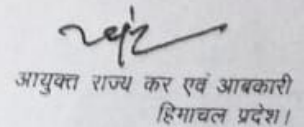 आयुक्त राज्य कर एवं आबकारी
हिमाचल प्रदेश।